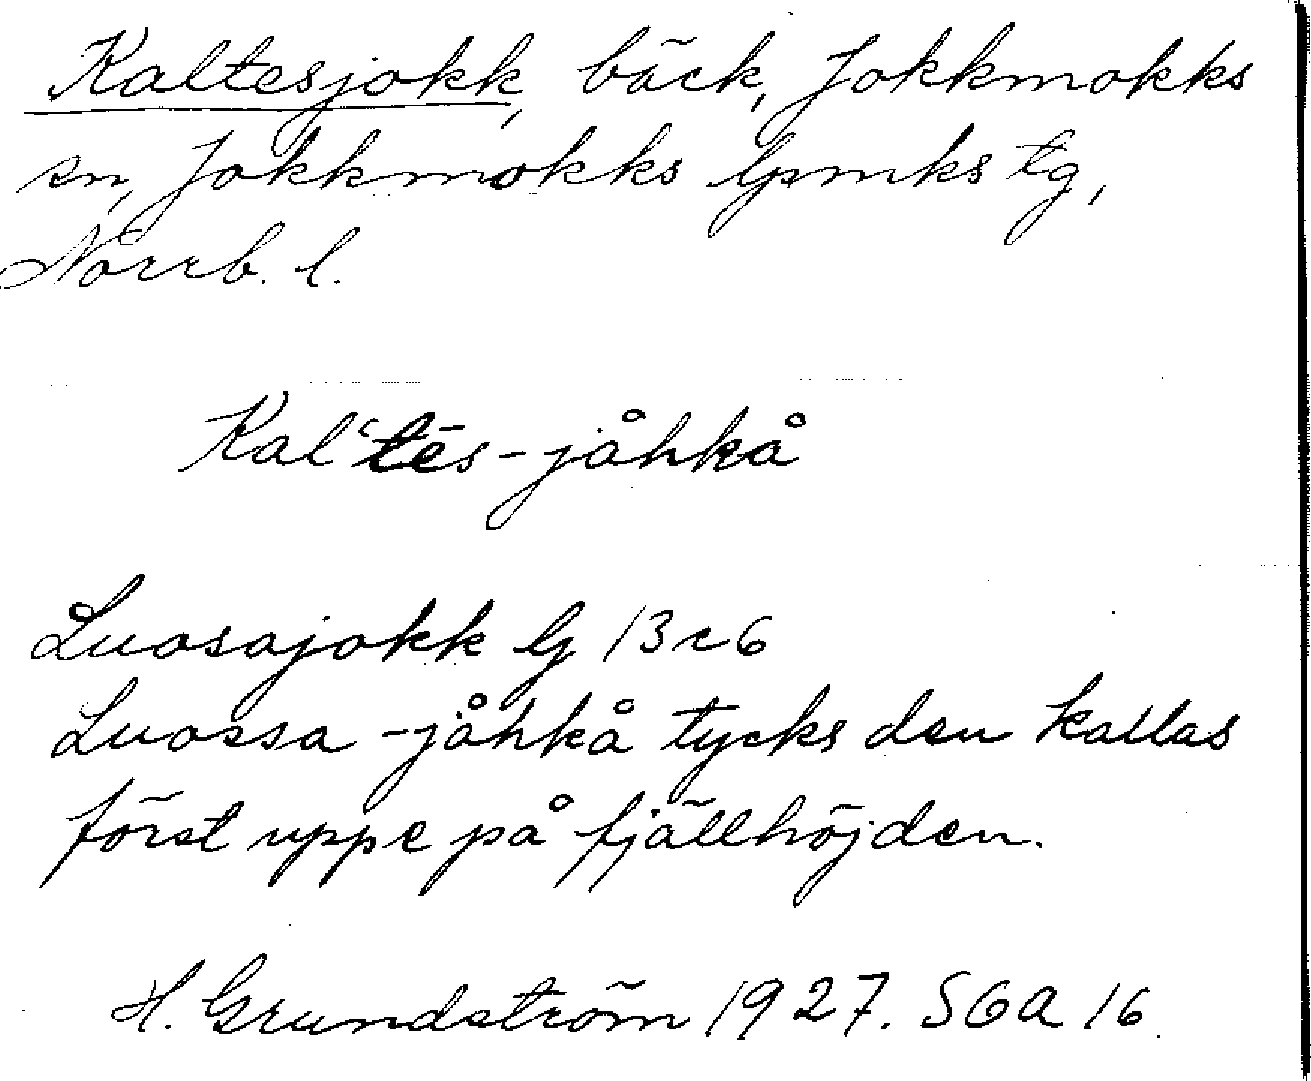 Kaltesjokk, bäck, Jokkmokks
sn, Jokkmokks lpmks tg,
Norrb. l.
Kal‘tēs-jåhkå
Luosajokk lg 13c6
Luossa-jåhkå tycks den kallas
först uppe på fjällhöjden.
H. Grundström 1927. SOA 16.